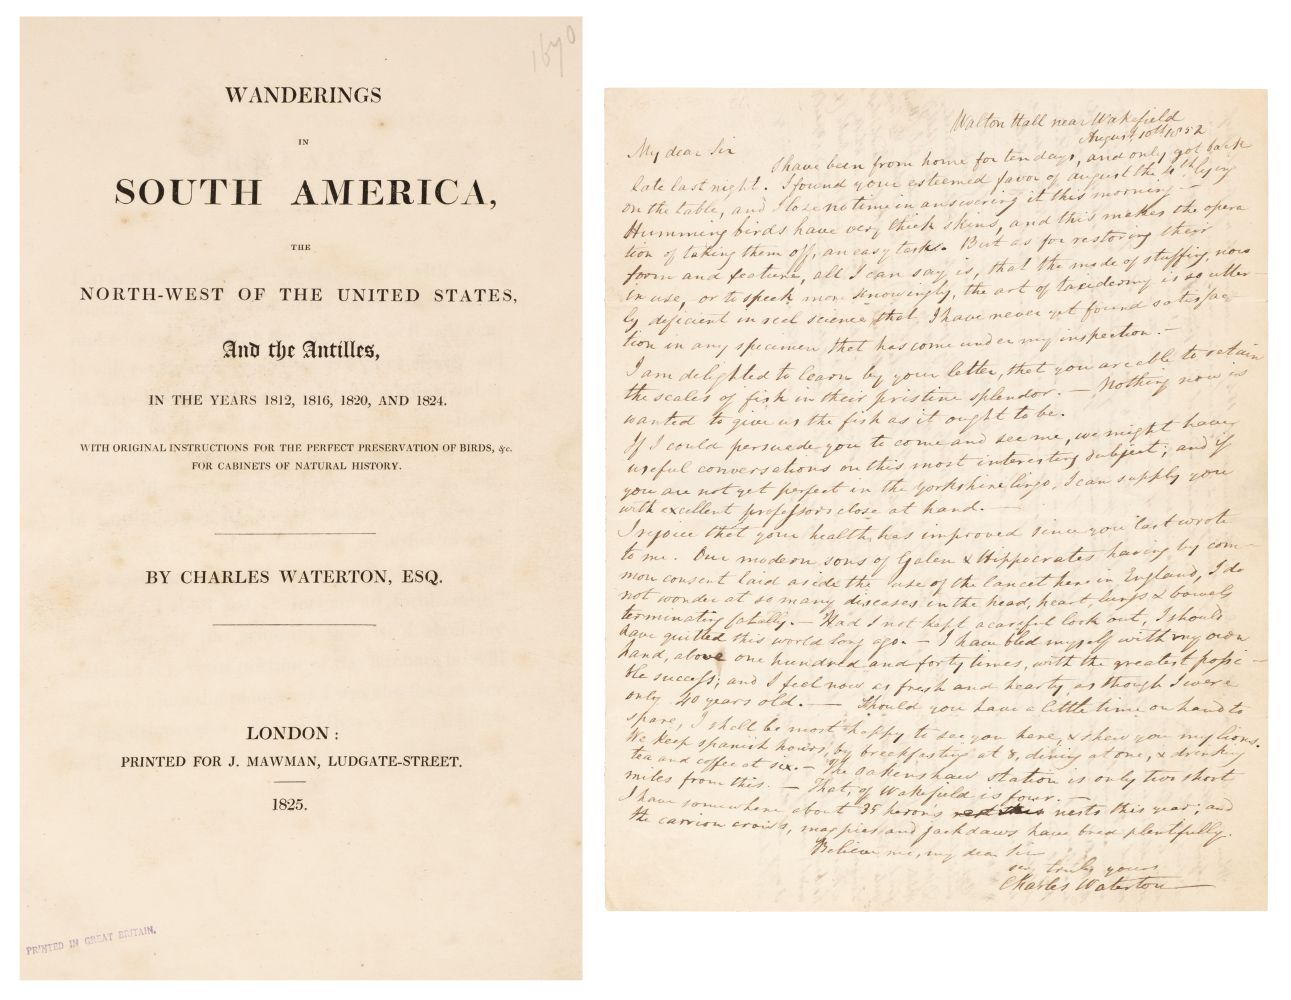 1670
WANDERINGS
IN
SOUTH AMERICA,
THE
NORTH-WEST OF THE UNITED STATES,
And the Antilles,
IN THE YEARS 1812, 1816, 1820, AND 1824.
WITH ORIGINAL INSTRUCTIONS FOR THE PERFECT PRESERVATION OF BIRDS, &c.
FOR CABINETS OF NATURAL HISTORY.
BY CHARLES WATERTON, ESQ.
LONDON:
PRINTED FOR J. MAWMAN, LUDGATE-STREET.
1825.
PRINTED IN GREAT BRITAIN.
Walton Hall near Wakefield
August 10th 1852
My dear Sir
I have been from home for ten days, and only got back
late last night. I found your esteemed favor of august the 4th lying
on the table, and I lose no time in answering it this morning.—
Humming birds have very thick skins, and this makes the opera
tion of taking them off, an easy task. But as for restoring their
form and feature, all I can say is, that the mode of stuffing, now
in use, or to speak more knowingly, the art of taxidermy is so utter-
ly deficient in real science that I have never yet found satisfac
tion in any specimen that has come under my inspection.—
I am delighted to learn by your letter, that you are able to retain
the scales of fish in their pristine splendor.— Nothing now is
wanted to give us the fish as it ought to be.
If I could persuade you to come and see me, we might have
useful conversations on this most interesting subject; and if
you are not yet perfect in the Yorkshire lingo, I can supply you
with excellent professors close at hand.—
I rejoice that your health has improved since you last wrote
to me. Our modern sons of Galen & Hippocrates having by com-
mon consent laid aside the use of the lancet here in England, I do
not wonder at so many diseases in the head, heart, lungs & bowels
terminating fatally.— Had I not kept a careful look out, I should
have quitted this world long ago.— I have bled myself with my own
hand, above one hundred and forty times, with the greatest possi-
ble success; and I feel now as fresh and hearty as though I were
only 40 years old.— Should you have a little time on hand to
spare, I shall be most happy to see you here, & shew you my lions.
We keep spanish hours, by breakfasting at 8, dining at one, & drinking
tea and coffee at six.— The Oakenshaw station is only two short
miles from this.— That, of Wakefield is four.—
I have somewhere about 35 herons nests this year; and
the carrion crows, magpies and jackdaws have bred plentifully.
Believe me, my dear Sir
truly yours
Charles Waterton